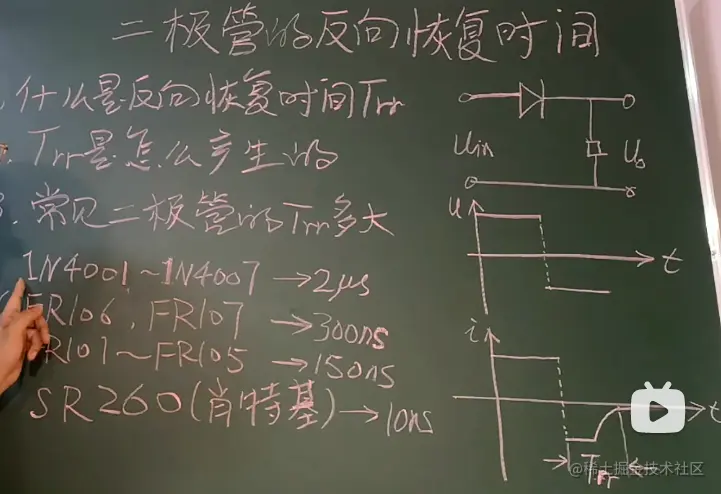 二极管的反向恢复时间
什么是反向恢复时间Trr
Trr是怎么产生的
常见二极管的Trr多大
1N4001~1N4007→2μs
FR106,FR107→300ns
R101~FR105→150ns
SR260(肖特基)→10ns
Uin
Uo
U
t
i
t
Trr
@稀土掘金技术社区